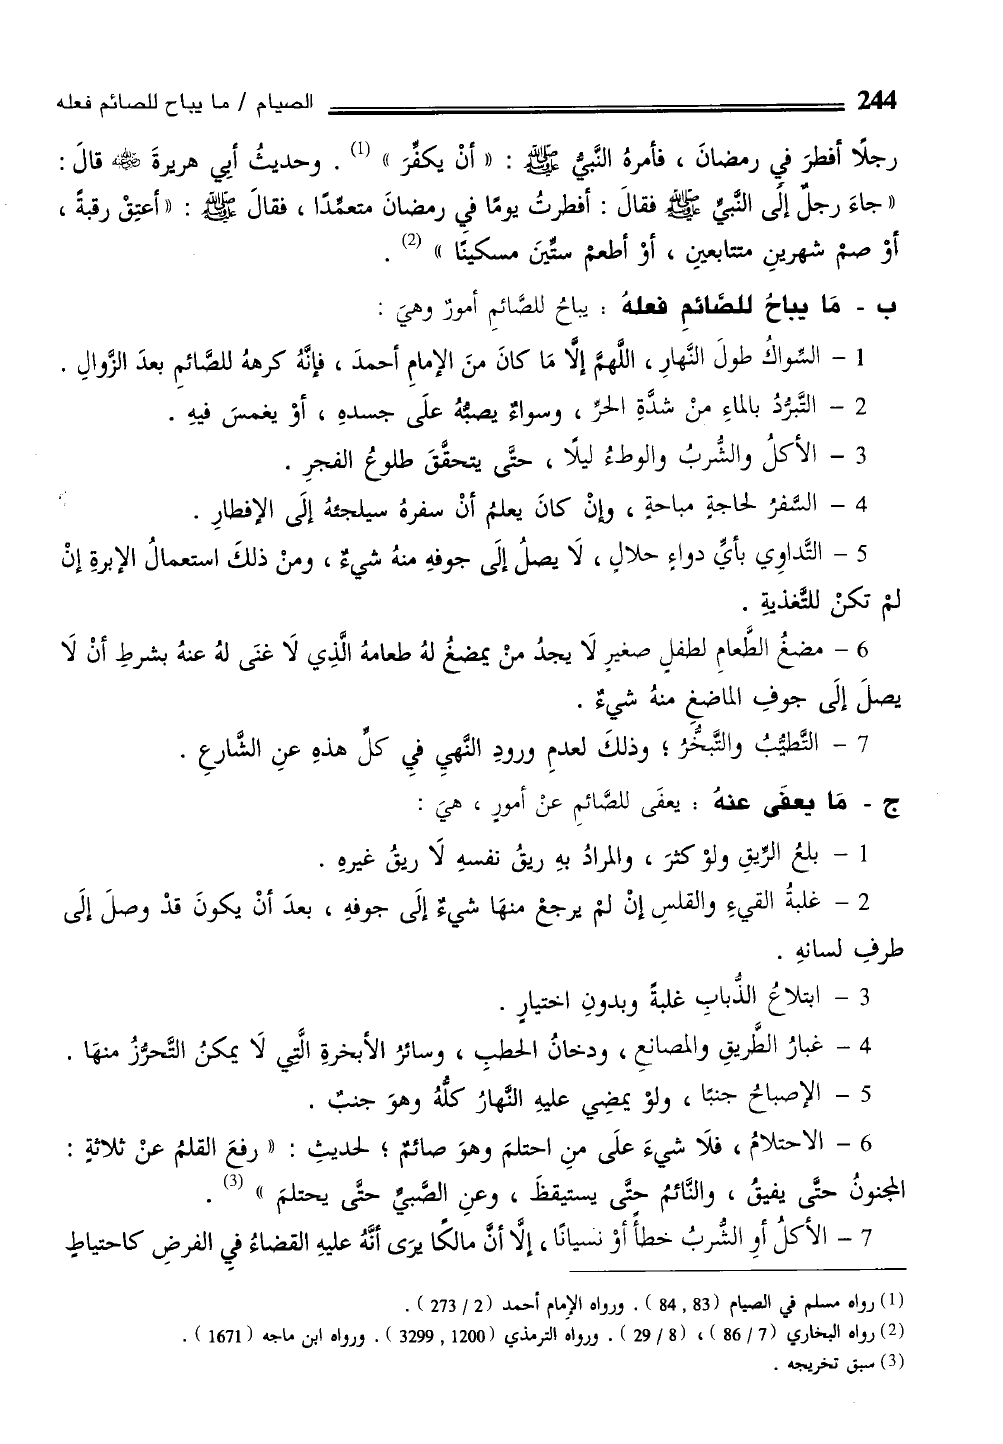 244 الصيام / ما يباح للصائم فعله
رجلًا أفطرَ في رمضانَ ، فأمرهُ النَّبيُّ ﷺ : « أنْ يكفِّرَ » (1) . وحديثُ أبِي هريرةَ ﷺ قالَ :
« جاءَ رجلٌ إلَى النَّبيِّ ﷺ فقالَ : أفطرتُ يومًا فِي رمضانَ متعمِّدًا ، فقالَ ﷺ : « أعتِقْ رقبةً ،
أوْ صمْ شهرينِ متتابعينِ ، أوْ أطعمْ ستِّينَ مسكينًا » (2) .
ب - مَا يباحُ للصَّائمِ فعلهُ : يباحُ للصَّائمِ أمورٌ وهيَ :
1 – السِّواكُ طولَ النَّهارِ ، اللَّهمَّ إلَّا مَا كانَ منَ الإمامِ أحمدَ ، فإنَّهُ كرههُ للصَّائمِ بعدَ الزَّوالِ .
2 – التَّبرُّدُ بالماءِ منْ شدَّةِ الحرِّ ، وسواءٌ يصبُّهُ علَى جسدهِ ، أوْ يغمسَ فيهِ .
3 – الأكلُ والشُّربُ والوطءُ ليلًا ، حتَّى يتحقَّقَ طلوعُ الفجرِ .
4 – السَّفرُ لحاجةٍ مباحةٍ ، وإنْ كانَ يعلمُ أنْ سفرهُ سيلجئهُ إلَى الإفطارِ .
5 – التَّداوِي بأيِّ دواءٍ حلالٍ ، لَا يصلُ إلَى جوفهِ منهُ شيءٌ ، ومنْ ذلكَ استعمالُ الإبرةِ إنْ
لمْ تكنْ للتَّغذيةِ .
6 – مضغُ الطَّعامِ لطفلٍ صغيرٍ لَا يجدُ منْ يمضغُ لهُ طعامهُ الَّذِي لَا غنَى لهُ عنهُ بشرطِ أنْ لَا
يصلَ إلَى جوفِ الماضغِ منهُ شيءٌ .
7 – التَّطيُّبُ والتَّبخُّرُ ؛ وذلكَ لعدمِ ورودِ النَّهيِ فِي كلِّ هذهِ عنِ الشَّارعِ .
ج - مَا يعفَى عنهُ : يعفَى للصَّائمِ عنْ أمورٍ ، هيَ :
1 – بلعُ الرِّيقِ ولوْ كثرَ ، والمرادُ بهِ ريقُ نفسهِ لَا ريقُ غيرهِ .
2 – غلبةُ القيءِ والقلسِ إنْ لمْ يرجعْ منهَا شيءٌ إلَى جوفهِ ، بعدَ أنْ يكونَ قدْ وصلَ إلَى
طرفِ لسانهِ .
3 – ابتلاعُ الذُّبابِ غلبةً وبدونِ اختيارٍ .
4 – غبارُ الطَّريقِ والمصانعِ ، ودخانُ الحطبِ ، وسائرُ الأبخرةِ الَّتِي لَا يمكنُ التَّحرُّزُ منهَا .
5 – الإصباحُ جنبًا ، ولوْ يمضِي عليهِ النَّهارُ كلُّهُ وهوَ جنبٌ .
6 – الاحتلامُ ، فلَا شيءَ علَى منِ احتلمَ وهوَ صائمٌ ؛ لحديثِ : « رفعَ القلمُ عنْ ثلاثةٍ :
المجنونُ حتَّى يفيقُ ، والنَّائمُ حتَّى يستيقظَ ، وعنِ الصَّبيِّ حتَّى يحتلمَ » (3) .
7 – الأكلُ أوِ الشُّربُ خطأً أوْ نسيانًا ، إلَّا أنَّ مالكًا يرَى أنَّهُ عليهِ القضاءُ فِي الفرضِ كاحتياطٍ
(1) رواه مسلم في الصيام (83 , 84 ) . ورواه الإمام أحمد (2 / 273 ) .
(2) رواه البخاري (7 / 86 ) ، (8 / 29 ) . ورواه الترمذي (1200 , 3299 ) . ورواه ابن ماجه (1671 ) .
(3) سبق تخريجه .